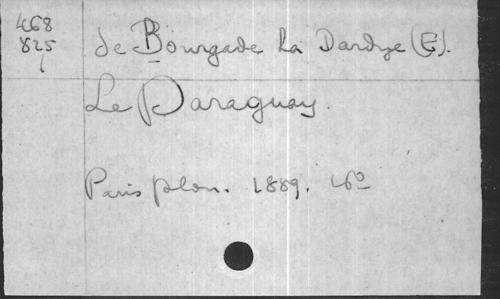 468
825
de Bourgade la Dardye (E).
Le Paraguay.
Paris Plon. 1889. 16o